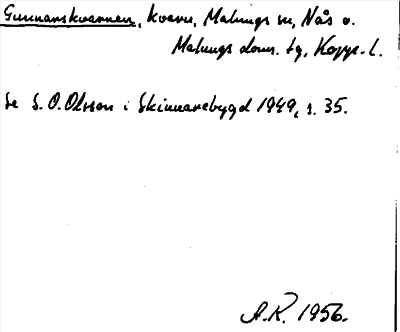 Gunnarskvarnen, kvarn, Malungs sn, Nås o.
Malungs doms. tg, Kopp. l.
Se S. O. Olsson i Skinnarebygd 1949, s. 35.
A.R. 1956.